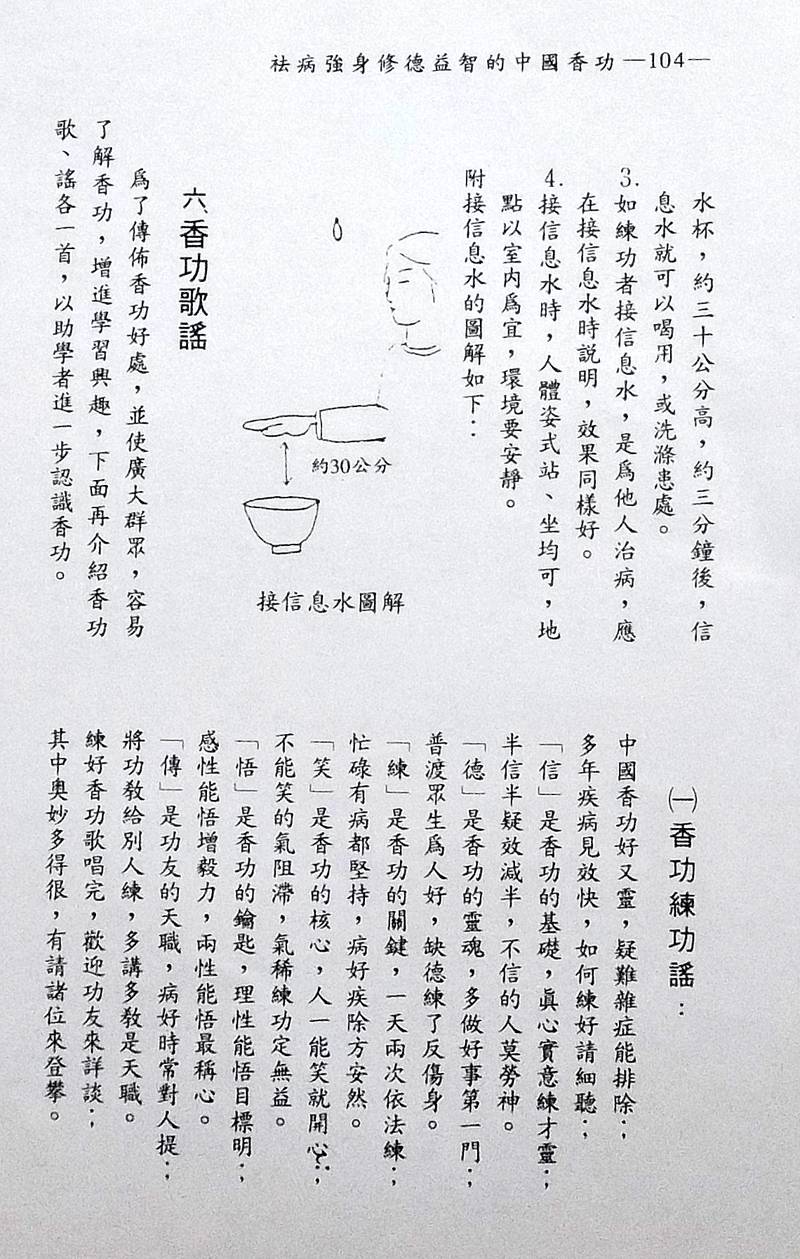 祛病強身修德益智的中國香功—104—
水杯，約三十公分高，約三分鐘後，信
息水就可以喝用，或洗滌患處。
3.如練功者接信息水，是爲他人治病，應
在接信息水時説明，效果同樣好。
4.接信息水時，人體姿式站、坐均可，地
點以室内爲宜，環境要安靜。
附接信息水的圖解如下：
約30公分
接信息水圖解
六、香功歌謠
爲了傳佈香功好處，並使廣大群眾，容易
了解香功，增進學習興趣，下面再介紹香功
歌、謠各一首，以助學者進一步認識香功。
㈠香功練功謠：
中國香功好又靈，疑難雜症能排除；
多年疾病見效快，如何練好請細聽；
「信」是香功的基礎，眞心實意練才靈；
半信半疑效減半，不信的人莫勞神。
「德」是香功的靈魂，多做好事第一門；
普渡眾生爲人好，缺德練了反傷身。
「練」是香功的關鍵，一天兩次依法練；
忙碌有病都堅持，病好疾除方安然。
「笑」是香功的核心，人一能笑就開心；
不能笑的氣阻滯，氣稀練功定無益。
「悟」是香功的鑰匙，理性能悟目標明；
感性能悟增毅力，兩性能悟最稱心。
「傳」是功友的天職，病好時常對人提；
將功教給別人練，多講多教是天職。
練好香功歌唱完，歡迎功友來詳談；
其中奧妙多得很，有請諸位來登攀。